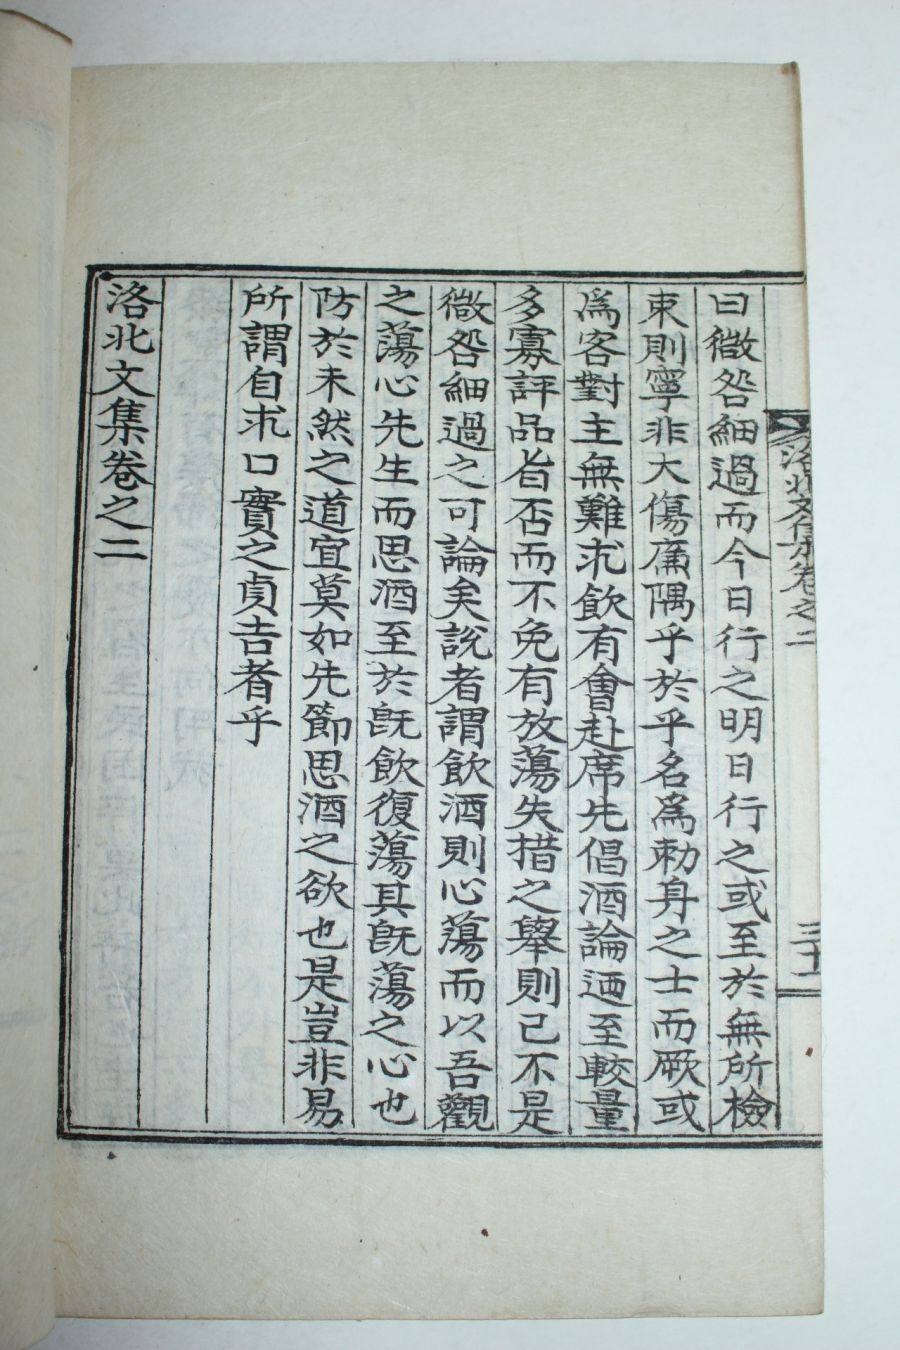 洛北文集卷之二
三十二
曰微咎細過而今日行之明日行之或至於無所檢
束則寧非大傷廉隅乎於乎名爲勑身之士而厥或
爲客對主無難求飮有會赴席先倡酒論迺至較量
多寡評品旨否而不免有放蕩失措之擧則已不是
微咎細過之可論矣說者謂飮酒則心蕩而以吾觀
之蕩心先生而思酒至於旣飮復蕩其旣蕩之心也
防於未然之道宜莫如先節思酒之欲也是豈非易
所謂自求口實之貞吉者乎
洛北文集卷之二